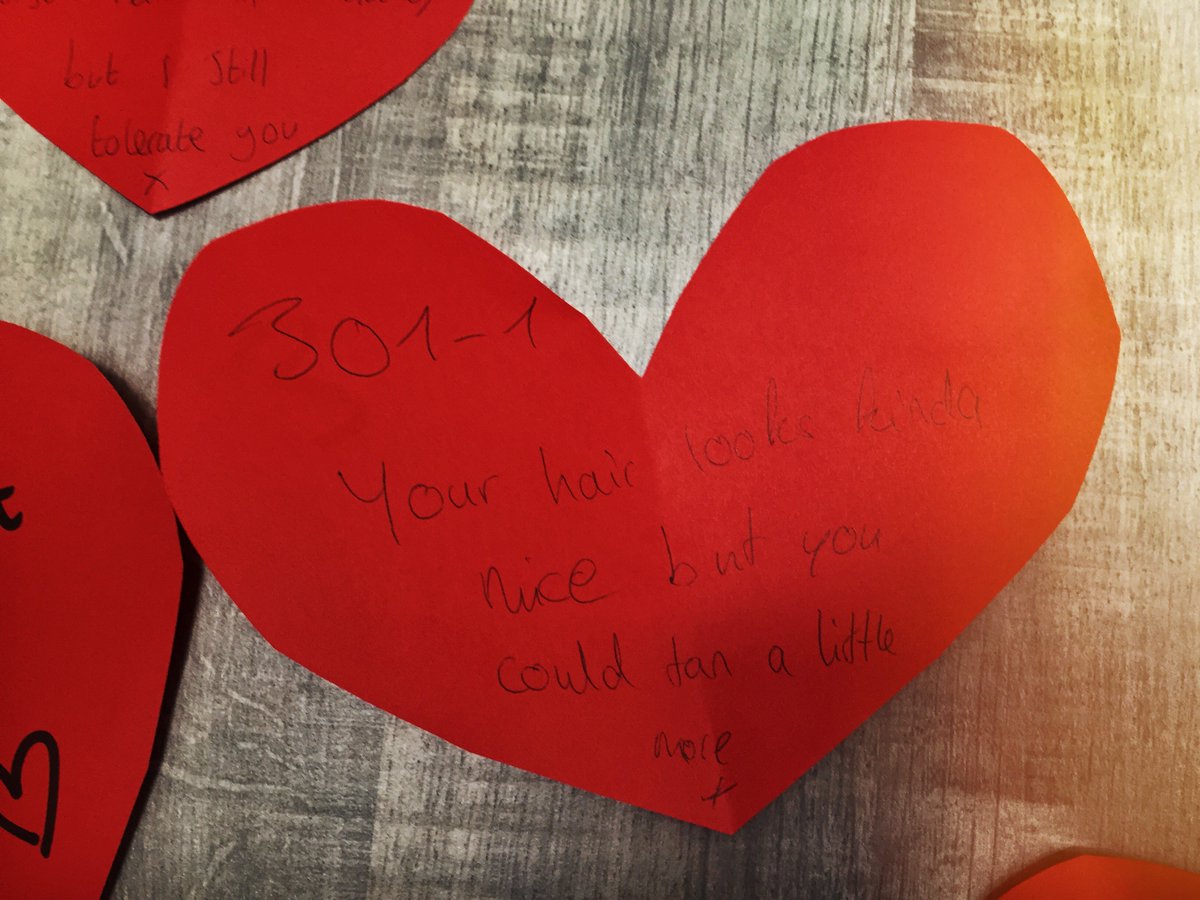 but I still
tolerate you
x
301-1
Your hair looks kinda
nice but you
could tan a little
more
x